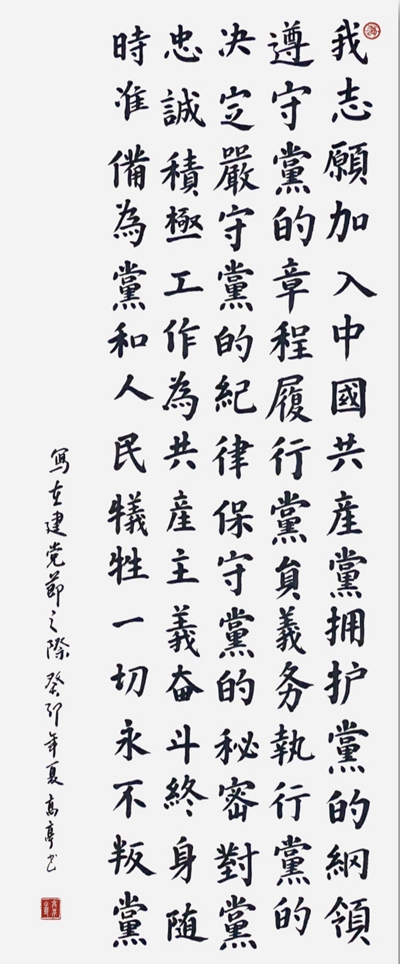 我志願加入中國共産黨拥护黨的綱領
遵守黨的章程履行黨員義务執行黨的
决定嚴守黨的紀律保守黨的秘密對黨
忠誠積極工作為共産主義奋斗終身随
時准備為黨和人民犠牲一切永不叛黨
寫在建党節之際癸卯年夏高亭书